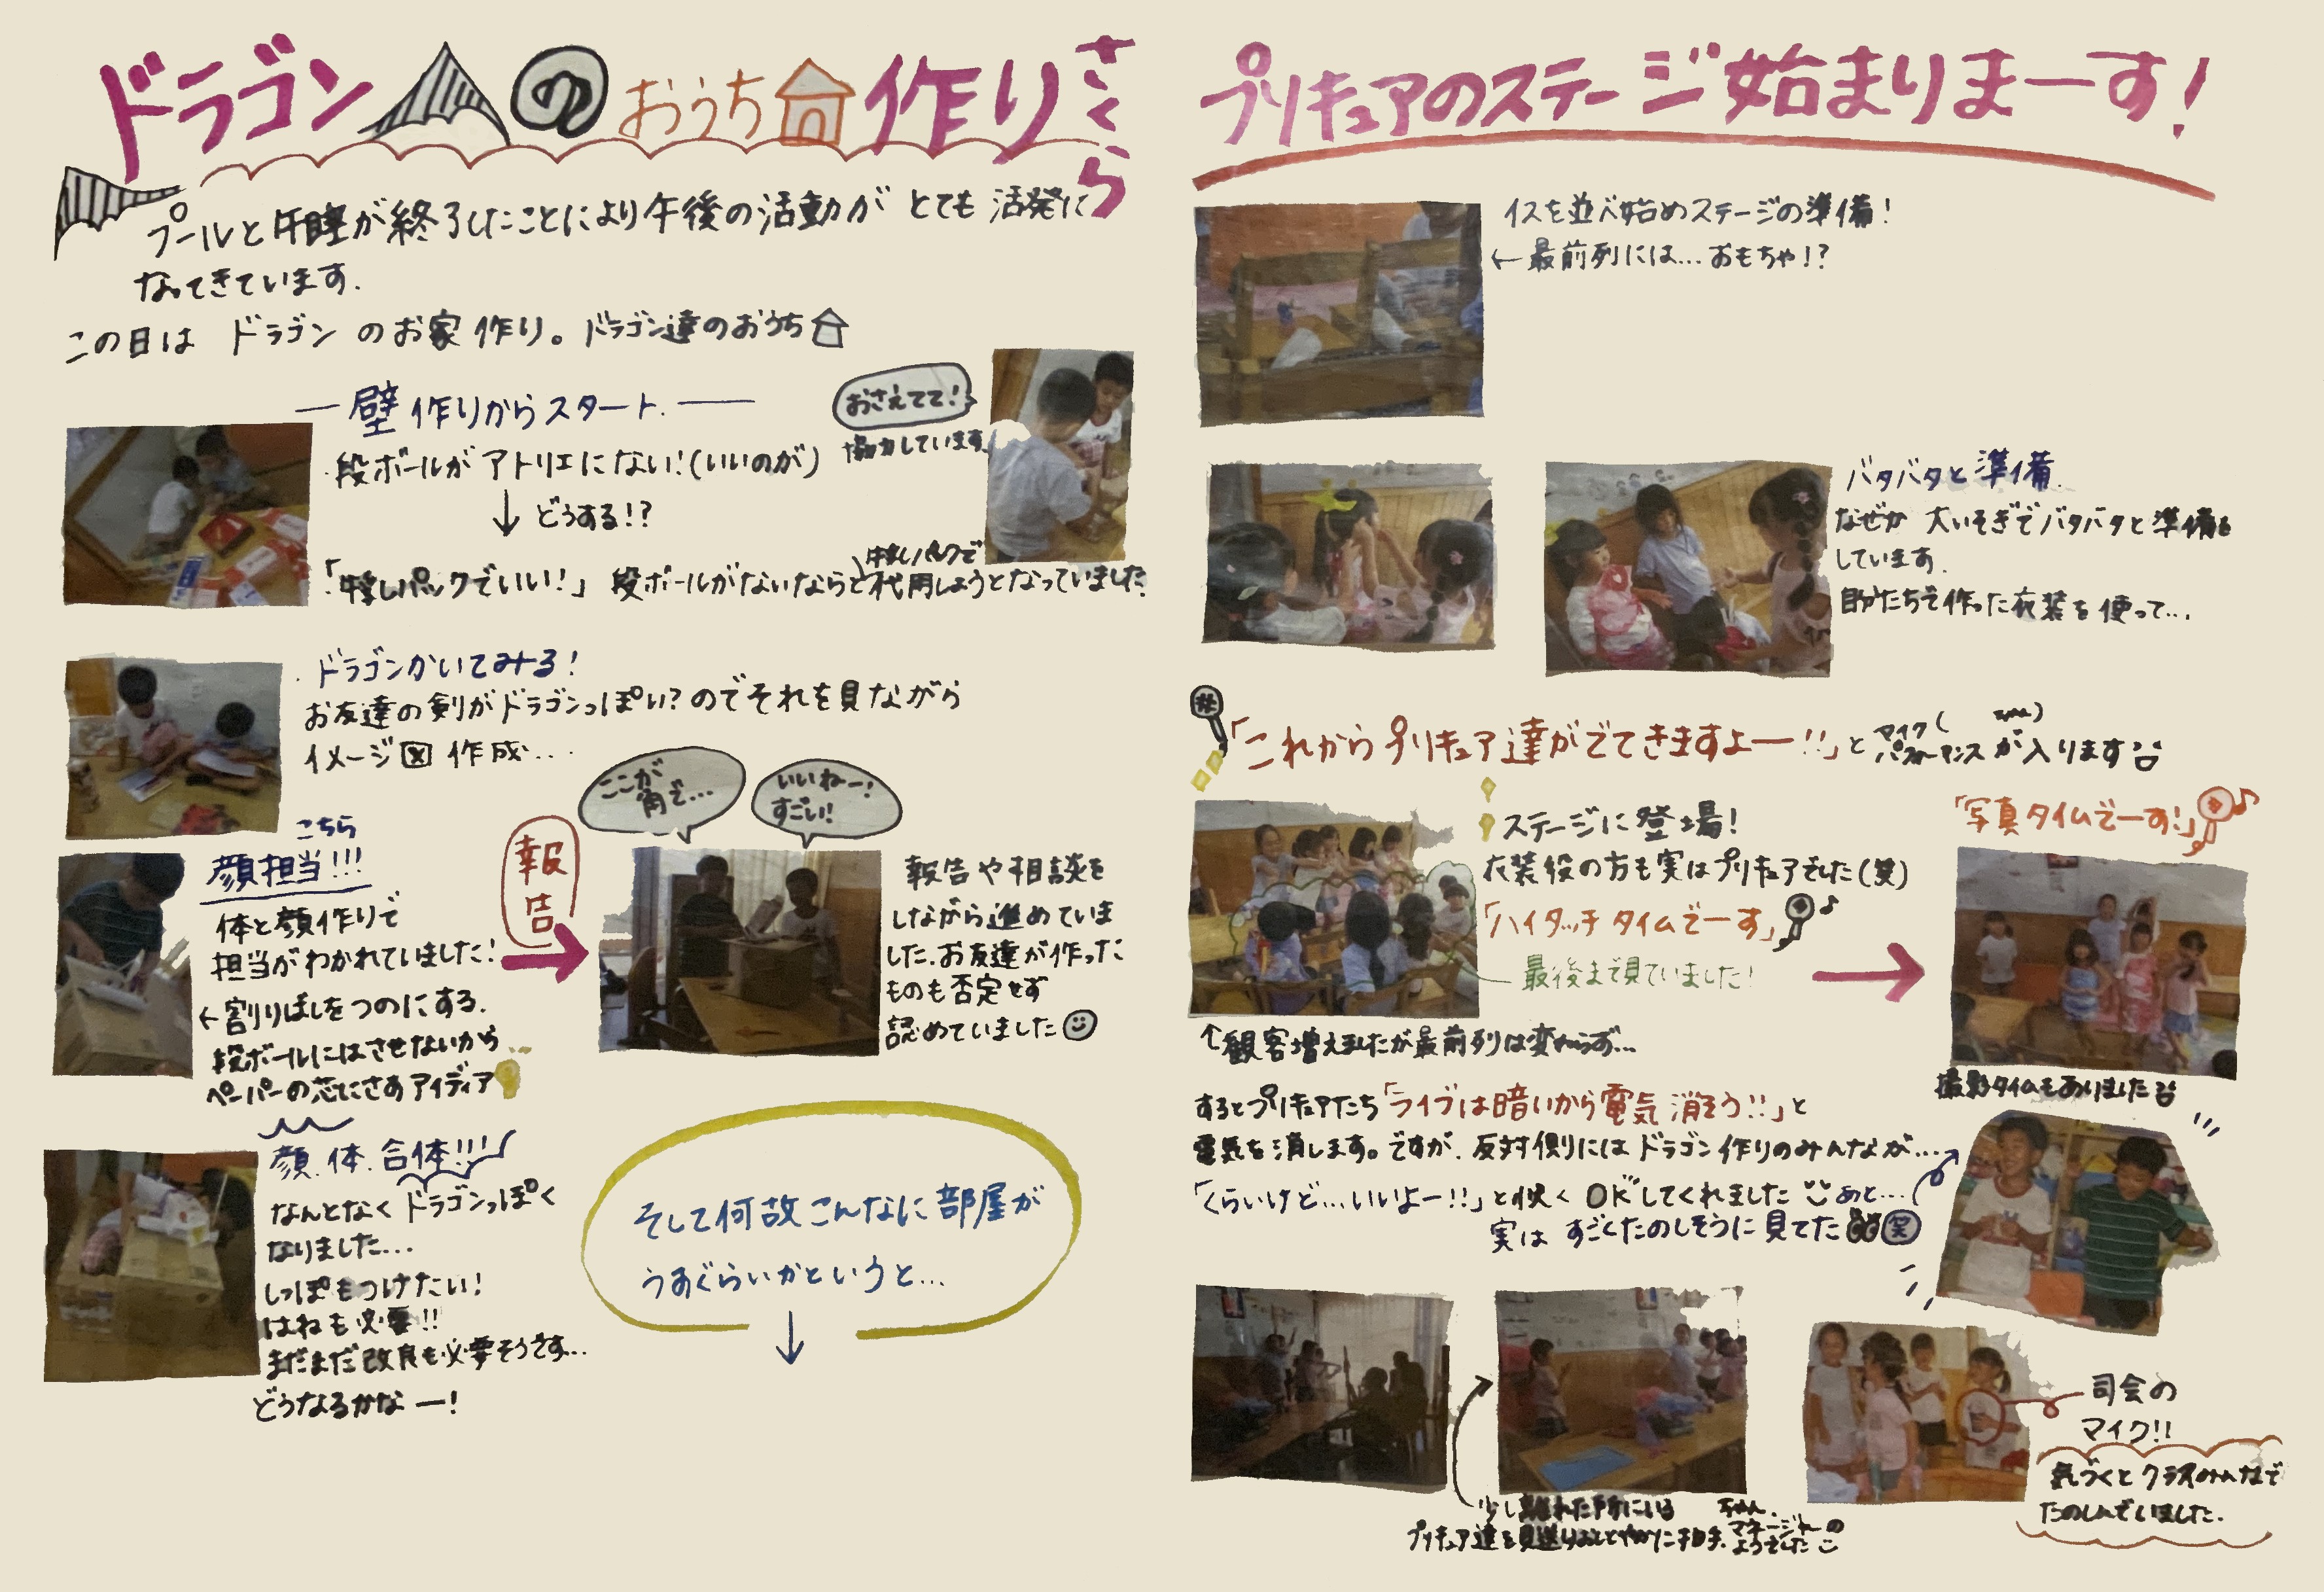 ドラゴンのおうち作り
さくら
プールと午睡が終了したことにより午後の活動がとても活発に
なってきています.
この日は ドラゴン のお家作り。ドラゴン達のおうち
壁作りからスタート.
おさえてて!
協力しています
段ボールがアトリエにない!(いいのが)
↓どうする!?
牛乳パックで
「牛乳パックでいい!」段ボールがないならと代用しようとなっていました
ドラゴンかいてみる!
お友達の剣がドラゴンっぽい?のでそれを見ながら
イメージ図作成...
こちら
顔担当!!!
体と顔作りで
担当がわかれていました!
←割りばしをつのにする.
段ボールにはさせないから
ペーパーの芯にさすアイディア
報告
ここが
角で...
いいねー!
すごい!
報告や相談を
しながら進めていま
した.お友達が作った
ものも否定せず
認めていました
顔.体.合体!!!
なんとなくドラゴンっぽく
なりました...
しっぽもつけたい!
はねも必要!!
まだまだ改良も必要そうです...
どうなるかなー!
そして何故こんなに部屋が
うすぐらいかというと...
↓
プリキュアのステージ始まりまーす!
イスを並べ始めステージの準備!
←最前列には...おもちゃ!?
バタバタと準備.
なぜか 大いそぎでバタバタと準備を
しています.
自分たちで作った衣装を使って...
「これからプリキュア達がでてきますよー!!」と
マイク(ちゃん)
パフォーマンスが入ります
ステージに登場!
衣装役の方も実はプリキュアでした(笑)
「ハイタッチタイムでーす」
最後まで見ていました!
↑観客増えましたが最前列は変わらず...
「写真タイムでーす!」
撮影タイムもありました
するとプリキュアたち「ライブは暗いから電気消そう!!」と
電気を消します。ですが.反対側にはドラゴン作りのみんなが...
「くらいけど...いいよー!!」と快くOKしてくれました あと...
実は すごくたのしそうに見てた 笑
少し離れた所にいる ちゃん.
プリキュア達を見送りおしとやかに拍手.マネージャーの
ようでした
司会の
マイク!!
気づくとクラスみんなで
たのしんでいました.